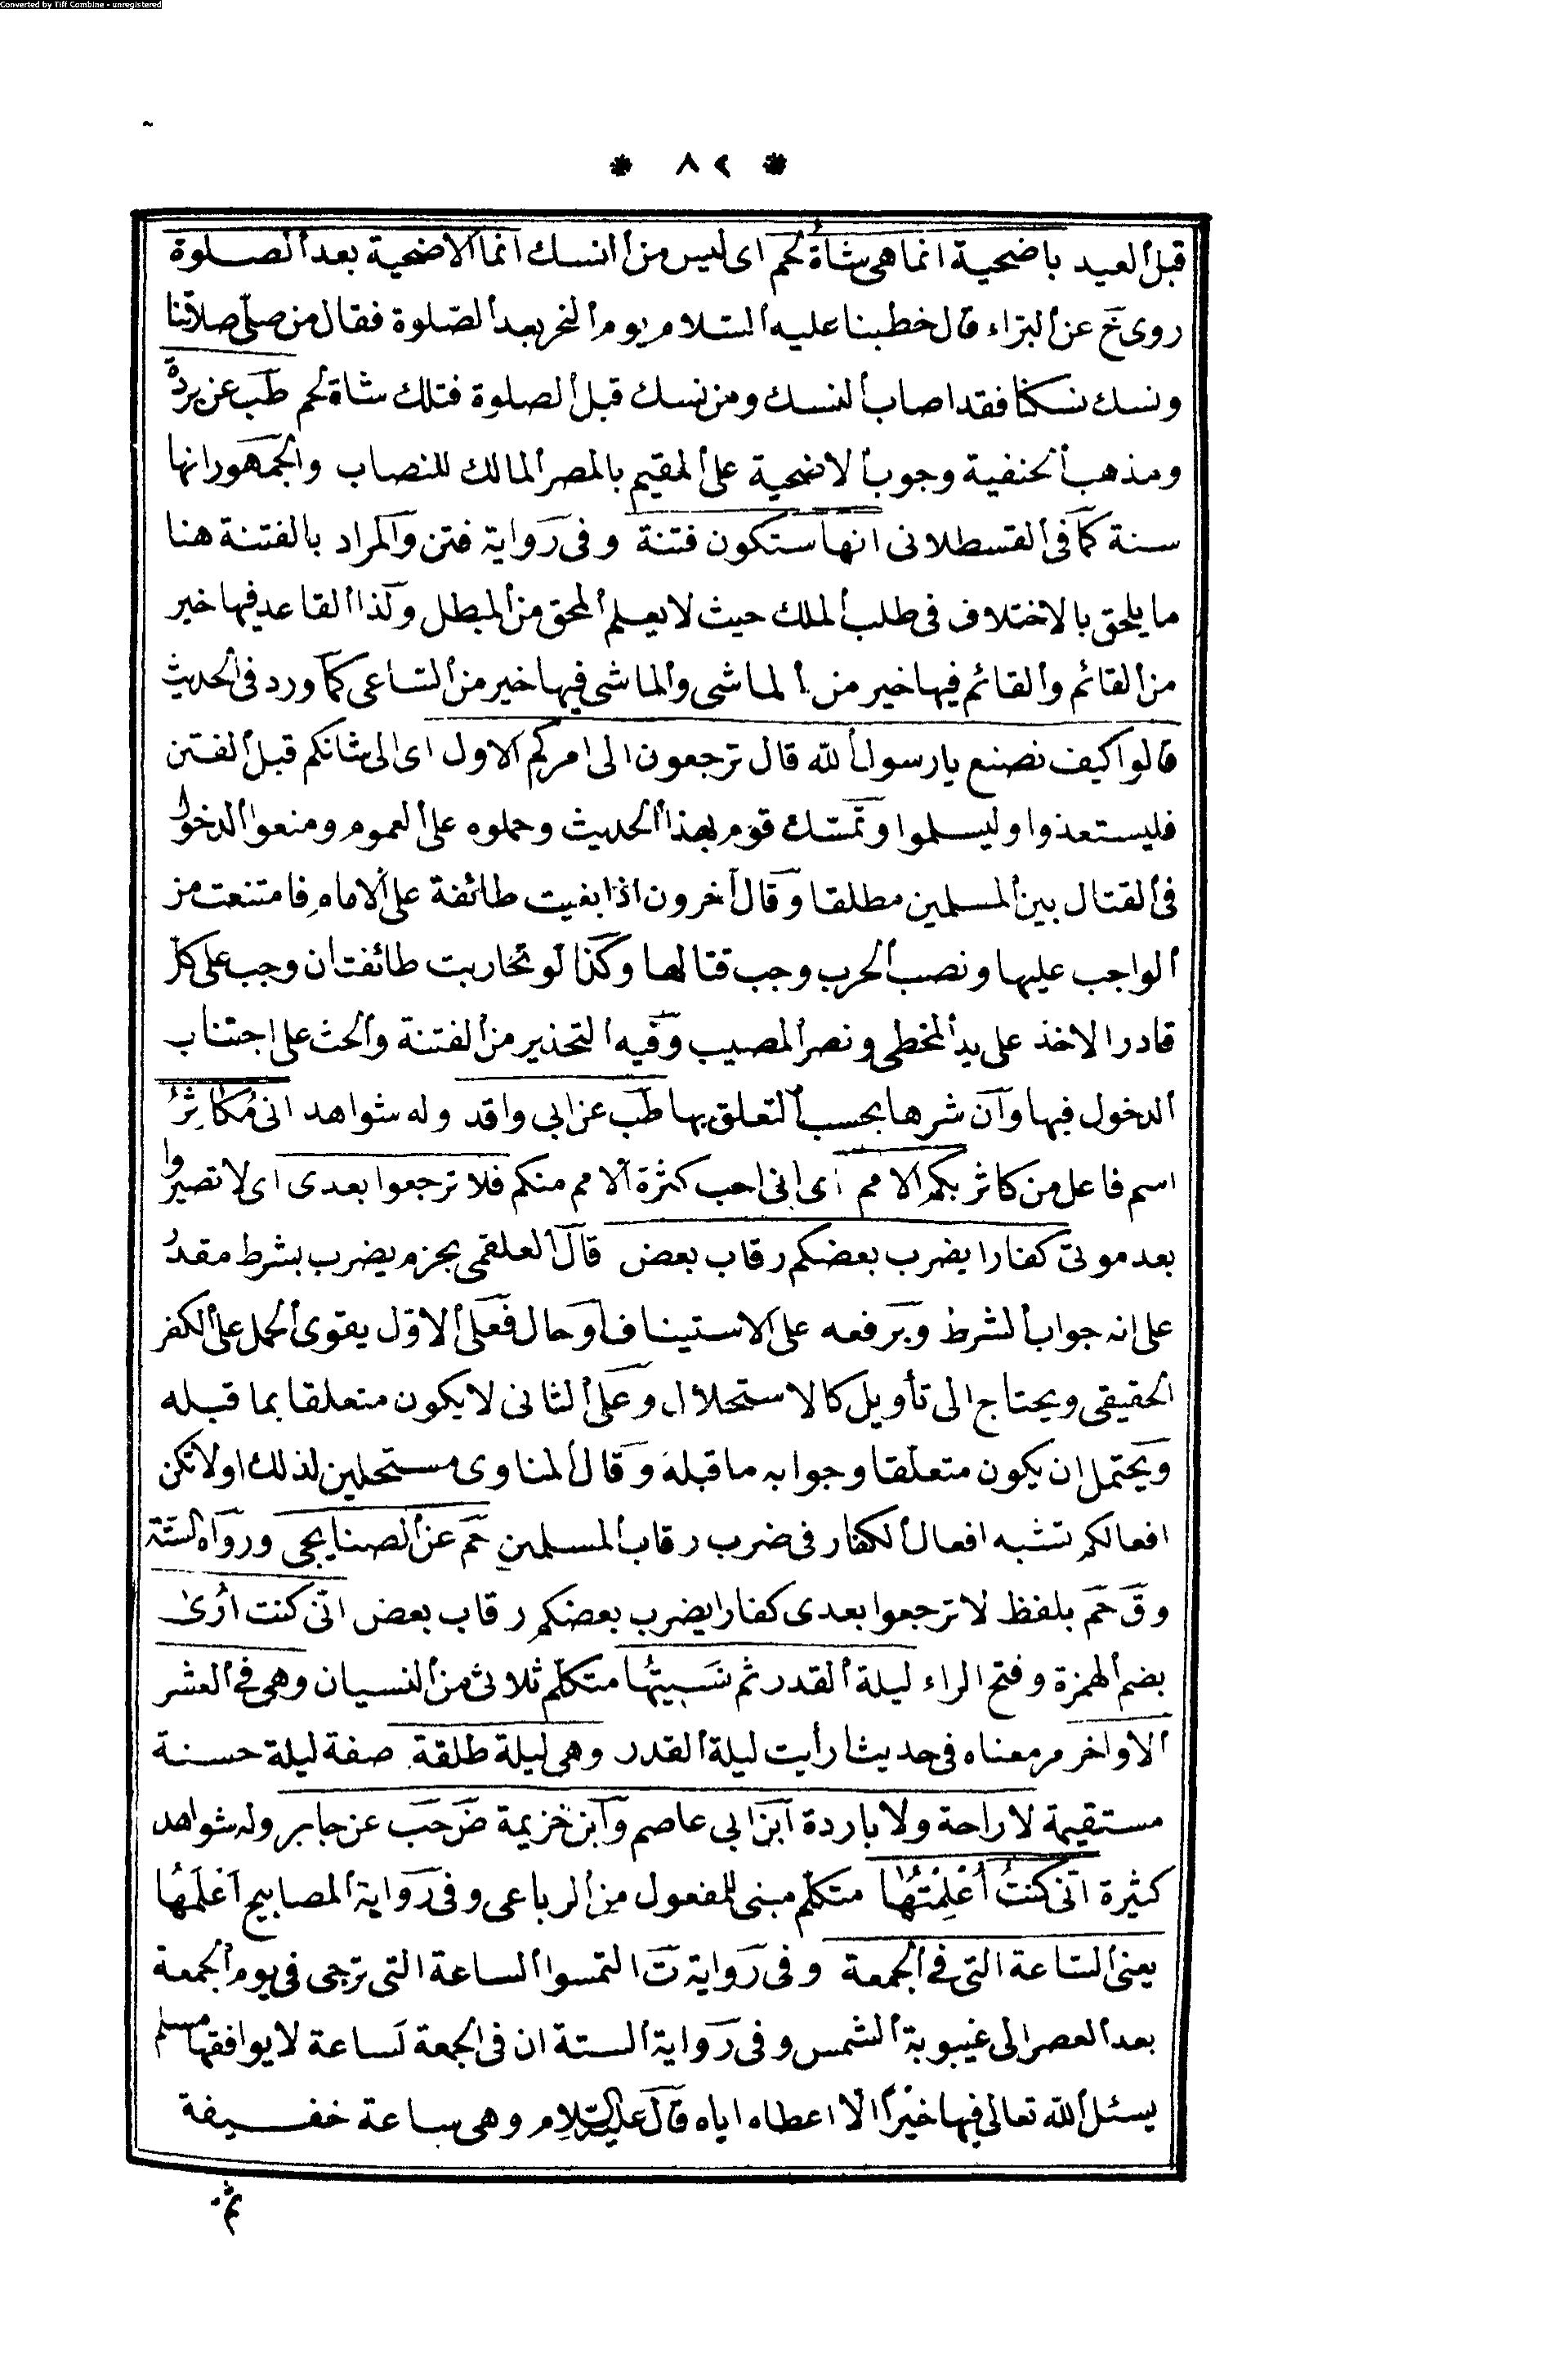 Converted by Tiff Combine - unregistered
* ٨٢ *
قبل العيد باضحية انما هى شاة لحم اى ليس من انسك انما الاضحية بعد الصلوة
روى خ عن البرّاء قال خطبنا عليه السّلام يوم النحر بعد الصّلوة فقال من صلّى صلاتنا
ونسك نسكنا فقد اصاب النسك ومن نسك قبل الصلوة فتلك شاة لحم طب عن بردة
ومذهب الحنفية وجوب الاضحية على المقيم بالمصر المالك للنصاب والجمهور انها
سنة كما فى القسطلانى انها ستكون فتنة وفى رواية فتن والمراد بالفتنة هنا
ما يلحق بالاختلاف فى طلب الملك حيث لا يعلم المحق من المبطل ولذا القاعد فيها خير
من القائم والقائم فيها خير من الماشى والماشى فيها خير من السّاعى كما ورد فى الحديث
قالوا كيف نصنع يا رسول الله قال ترجعون الى امركم الاول اى الى شانكم قبل الفتن
فليستعذوا وليسلموا وتمسّك قوم بهذا الحديث وحملوه على العموم ومنعوا الدخول
فى القتال بين المسلمين مطلقا وقال آخرون اذا بغيت طائفة على الامام فامتنعت من
الواجب عليها ونصب الحرب وجب قتالها وكذا لو تحاربت طائفتان وجب على كلّ
قادر الاخذ على يد المخطى ونصر المصيب وفيه التحذير من الفتنة والحث على اجتناب
الدخول فيها وان شرها بحسب التعلق بها طب عن ابى واقد وله شواهد انى مُكاثِرٌ
اسم فاعل من كاثر بكم الامم اى انى احب كثرة الامم منكم فلا ترجعوا بعدى اى لا تصيروا
بعد موتى كفارا يضرب بعضكم رقاب بعض قال العلقمى بجزم يضرب بشرط مقدر
على انه جواب الشرط وبرفعه على الاستيناف او حال فعلى الاوّل يقوى الحمل على الكفر
الحقيقى ويحتاج الى تأويل كالاستحلال وعلى الثانى لا يكون متعلقا بما قبله
ويحتمل ان يكون متعلقا وجوابه ما قبله وقال المناوى مستحلين لذلك او لا تكن
افعالكم تشبه افعال الكفار فى ضرب رقاب المسلمين حم عن الصنابحى ورواه الستّة
وق حم بلفظ لا ترجعوا بعدى كفارا يضرب بعضكم رقاب بعض انّى كنت اُرىٰ
بضم الهمزة وفتح الراء ليلة القدر ثم نسيتُها متكلّم ثلاثى من النسيان وهى فى العشر
الاواخر مر معناه فى حديث ارأيت ليلة القدر وهى ليلة طلقة صفة ليلة حسنة
مستقيمة لا راحة ولا باردة ابن ابى عاصم وابن خزيمة ض حب عن جابر وله شواهد
كثيرة انّى كنتُ اُعْلِمْتُها متكلّم مبنى للمفعول من الرباعى وفى رواية المصابيح اَعْلَمُها
يعنى السّاعة التى فى الجمعة وفى رواية ت التمسوا الساعة التى ترجى فى يوم الجمعة
بعد العصر الى غيبوبة الشمس وفى رواية الستة ان فى الجمعة لَساعة لا يوافقها مسلم
يسئل الله تعالى فيها خيرًا الا اعطاه اياه قال عليه السّلام وهى ساعة خفيفة
ثم